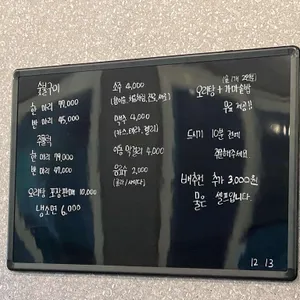 숯불구이
한 마리 77,000
반 마리 45,000
주물럭
한 마리 79,000
반 마리 47,000
오리탕 포장판매 10,000
냉소면 6,000
소주 4,000
맥주 4,000
(카스, 테라, 켈리)
막걸리 4,000
음료수 2,000
(콜라/사이다)
오리탕 + 가마솥밥
무료 제공!!
드시기 10분 전에
말해주세요
배추전 추가 3,000원
물은 셀프입니다.
12 13